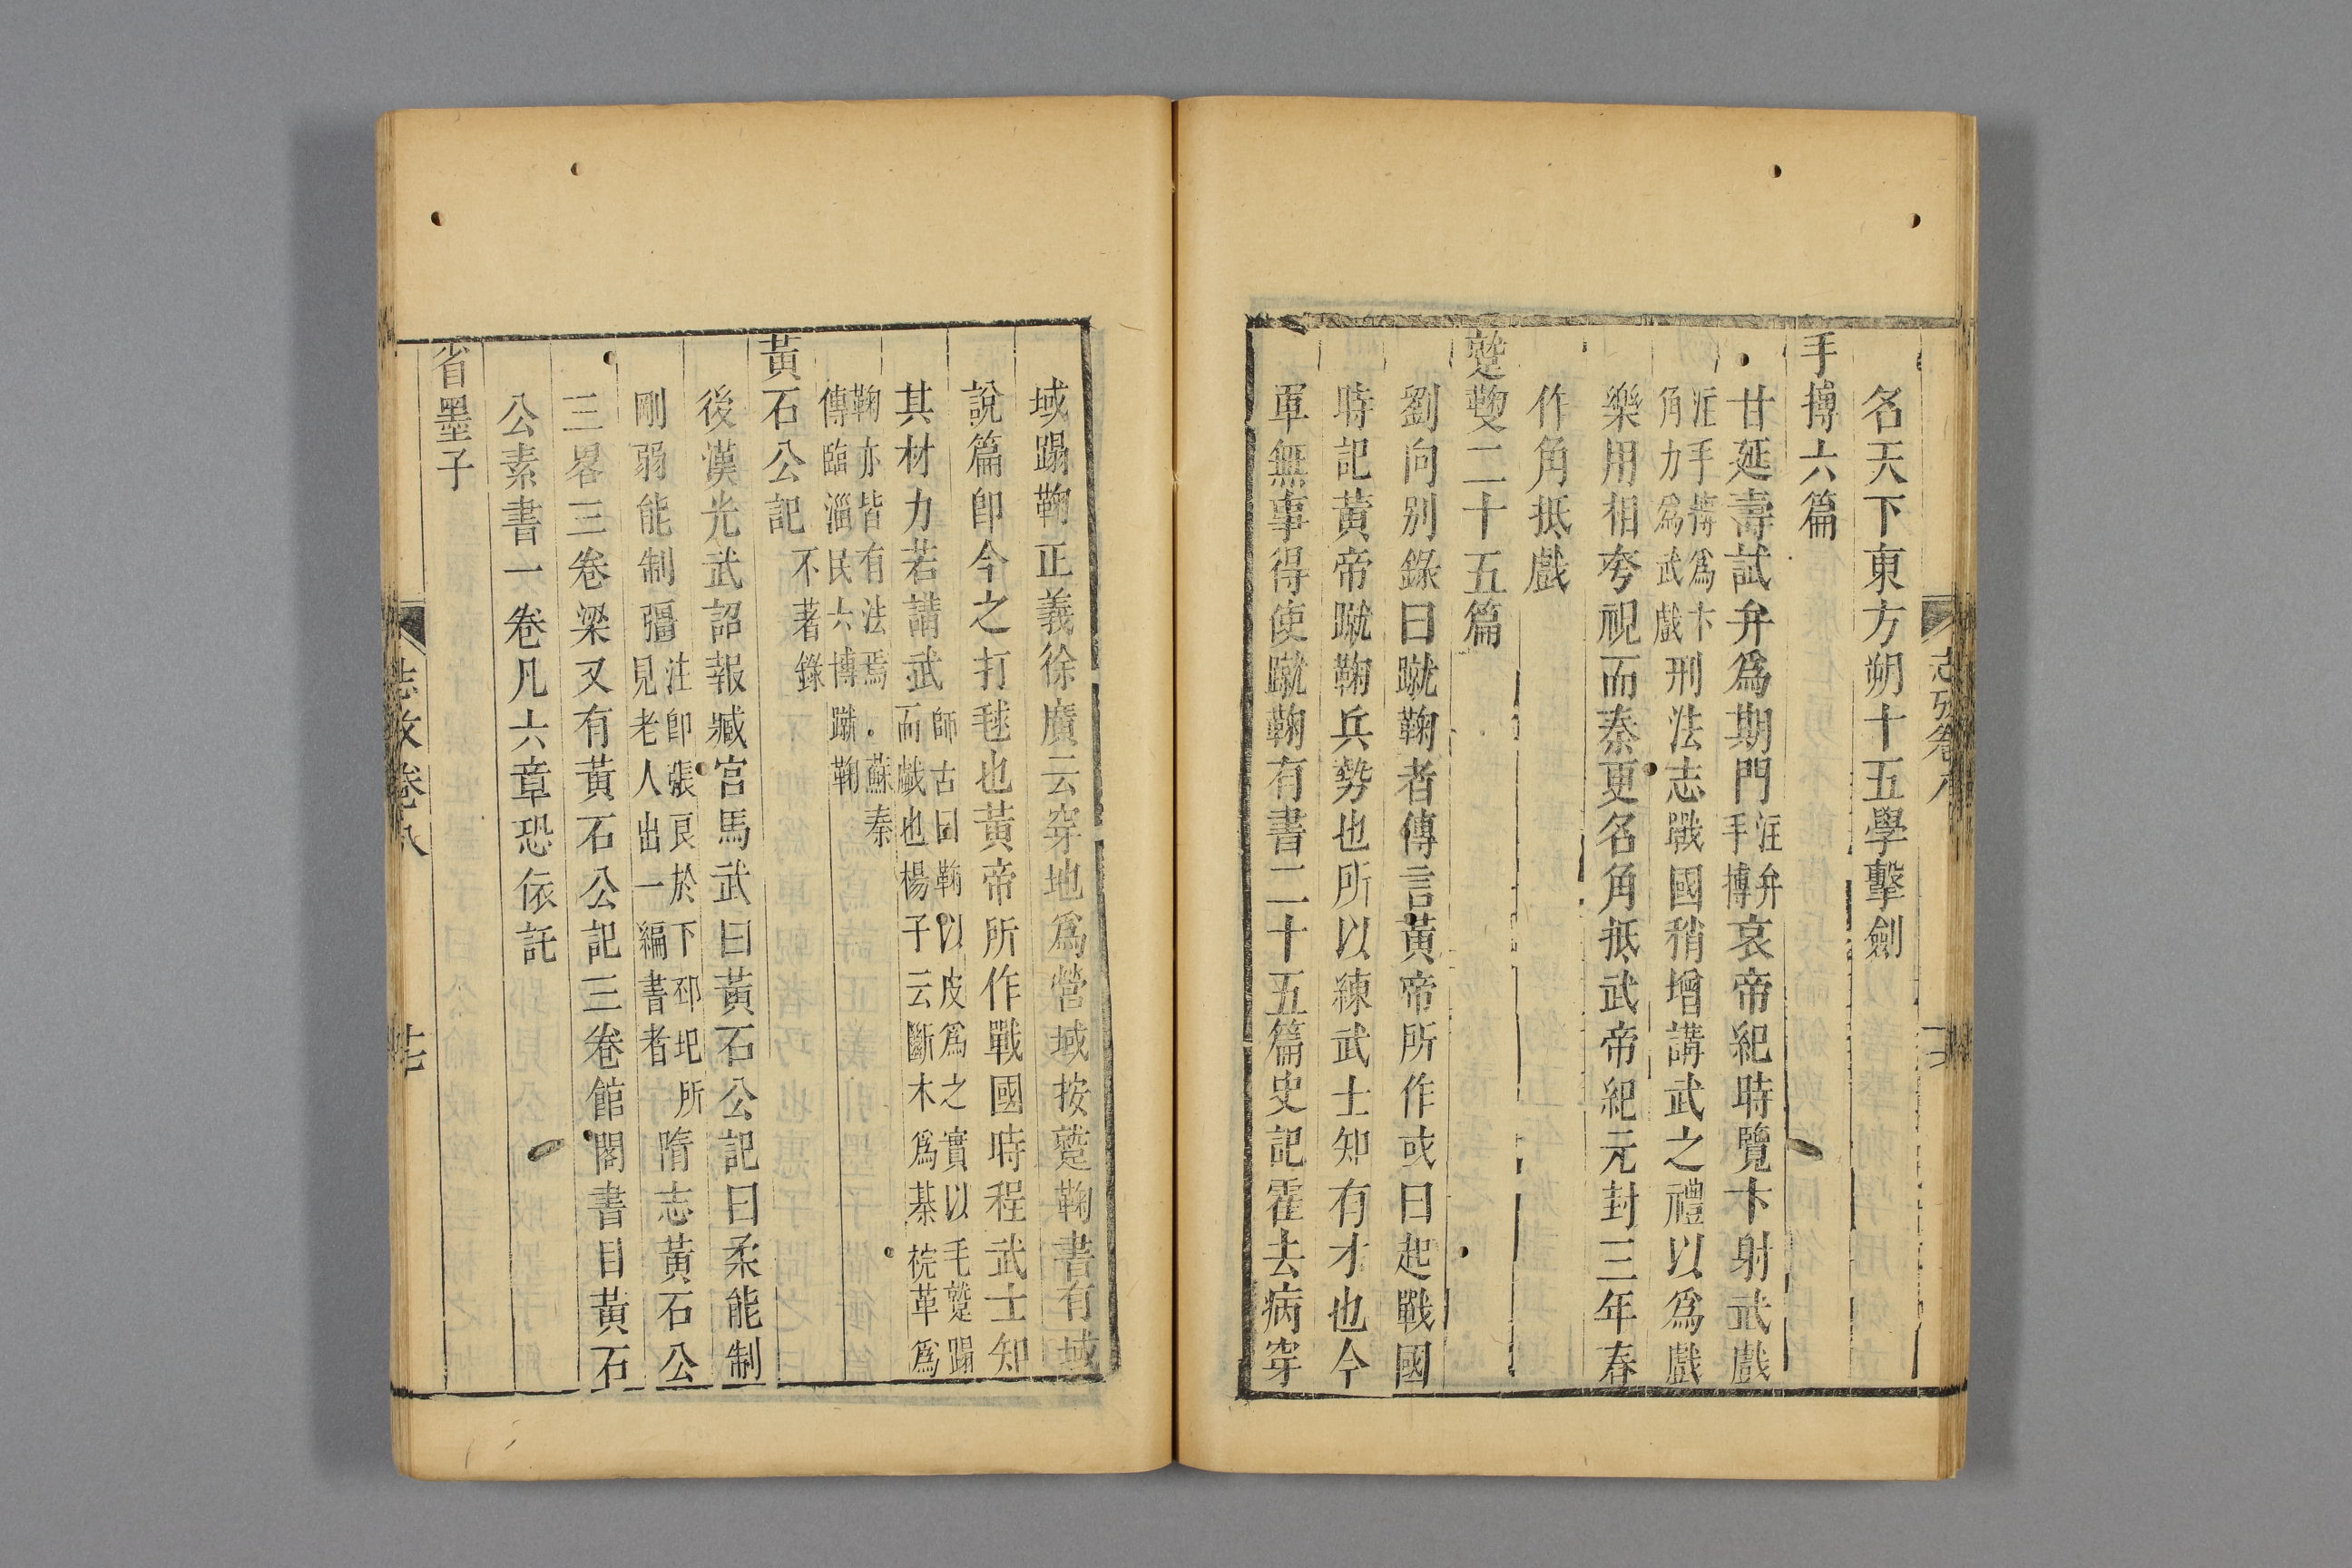 名天下東方朔十五學擊劍
手搏六篇
甘延壽試弁爲期門注弁手搏哀帝紀時覽卞射武戲
注手搏爲卞角力爲武戲刑法志戰國稍增講武之禮以爲戲
樂用相夸視而秦更名角抵武帝紀元封三年春
作角抵戲
蹵鞠二十五篇
劉向别錄曰蹴鞠者傳言黃帝所作或曰起戰國
時記黃帝蹴鞠兵勢也所以練武士知有才也今
軍無事得使蹴鞠有書二十五篇史記霍去病穿
域蹋鞠正義徐廣云穿地爲營域按蹵鞠書有域
說篇卽今之打毬也黃帝所作戰國時程武士知
其材力若講武師古曰鞠以皮爲之實以毛蹵蹋而戲也楊子云斷木爲棊梡革爲
鞠亦皆有法焉。蘇秦傳臨淄民六博蹴鞠
黃石公記不著錄
後漢光武詔報臧宮馬武曰黃石公記曰柔能制
剛弱能制彊注卽張良於下邳圯所見老人出一編書者隋志黃石公
三畧三卷梁又有黃石公記三卷館閣書目黃石
公素書一卷凡六章恐依託
省墨子
志攷卷八